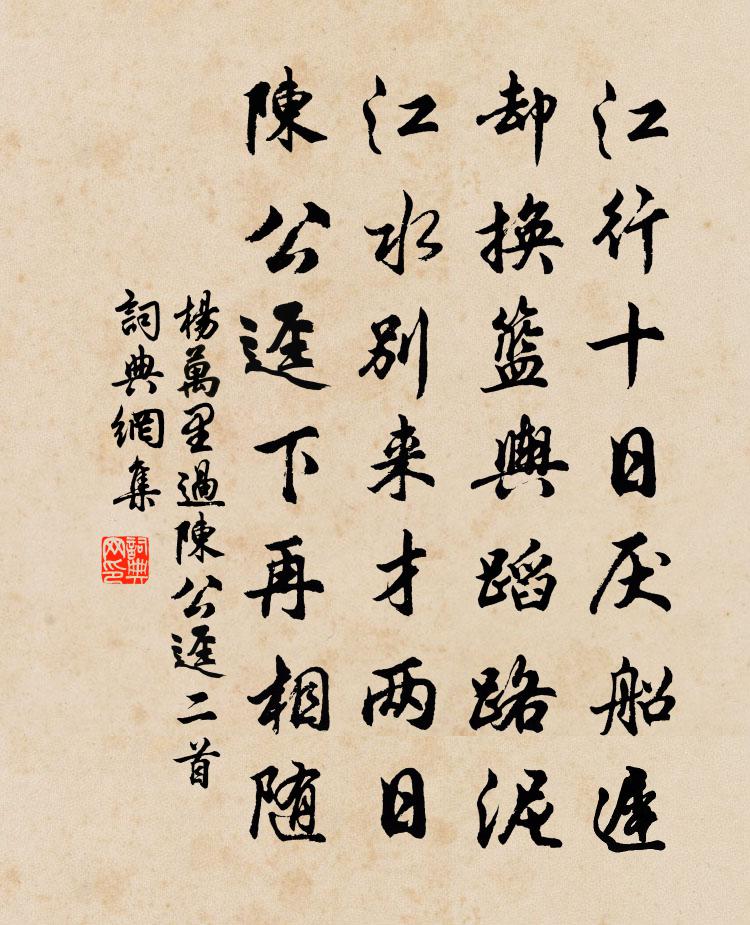 江行十日厌船遲
却换籃輿蹈路泥
江水别来才两日
陳公逕下再相随
楊萬里過陳公逕二首
詞典網集
詞典网印